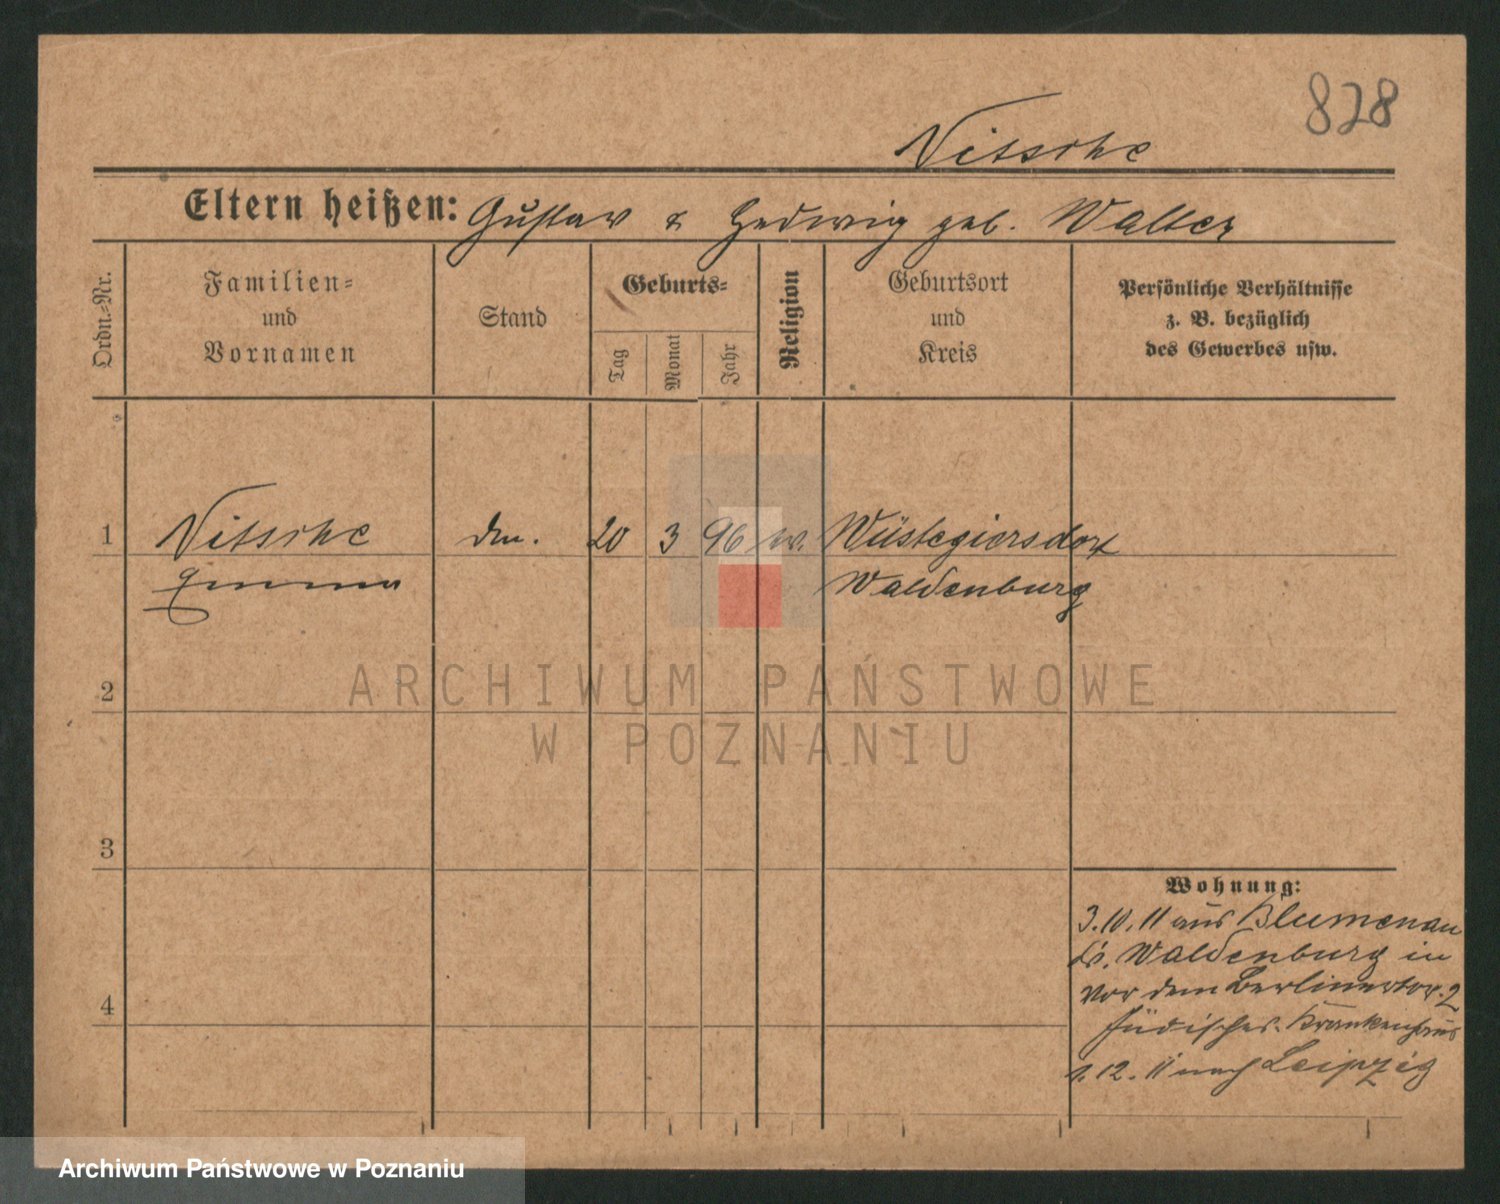 828
Nitsche
Eltern heißen: Gustav & Hedwig geb. Walter
Ordn.=Nr.
Familien=
und
Vornamen
Stand
Geburts=
Tag
Monat
Jahr
Religion
Geburtsort
und
Kreis
Persönliche Verhältnisse
z. B. bezüglich
des Gewerbes usw.
1 Nitsche 20 3 96 Wüstegiersdorf
Emma Waldenburg
2
3
4
Wohnung:
3.10.11 aus Blumenau
Kr. Waldenburg in
vor dem Berlinertor. 2
Jüdisches. Krankenhaus
1.12.11 nach Leipzig
ARCHIWUM PAŃSTWOWE
W POZNANIU
Archiwum Państwowe w Poznaniu